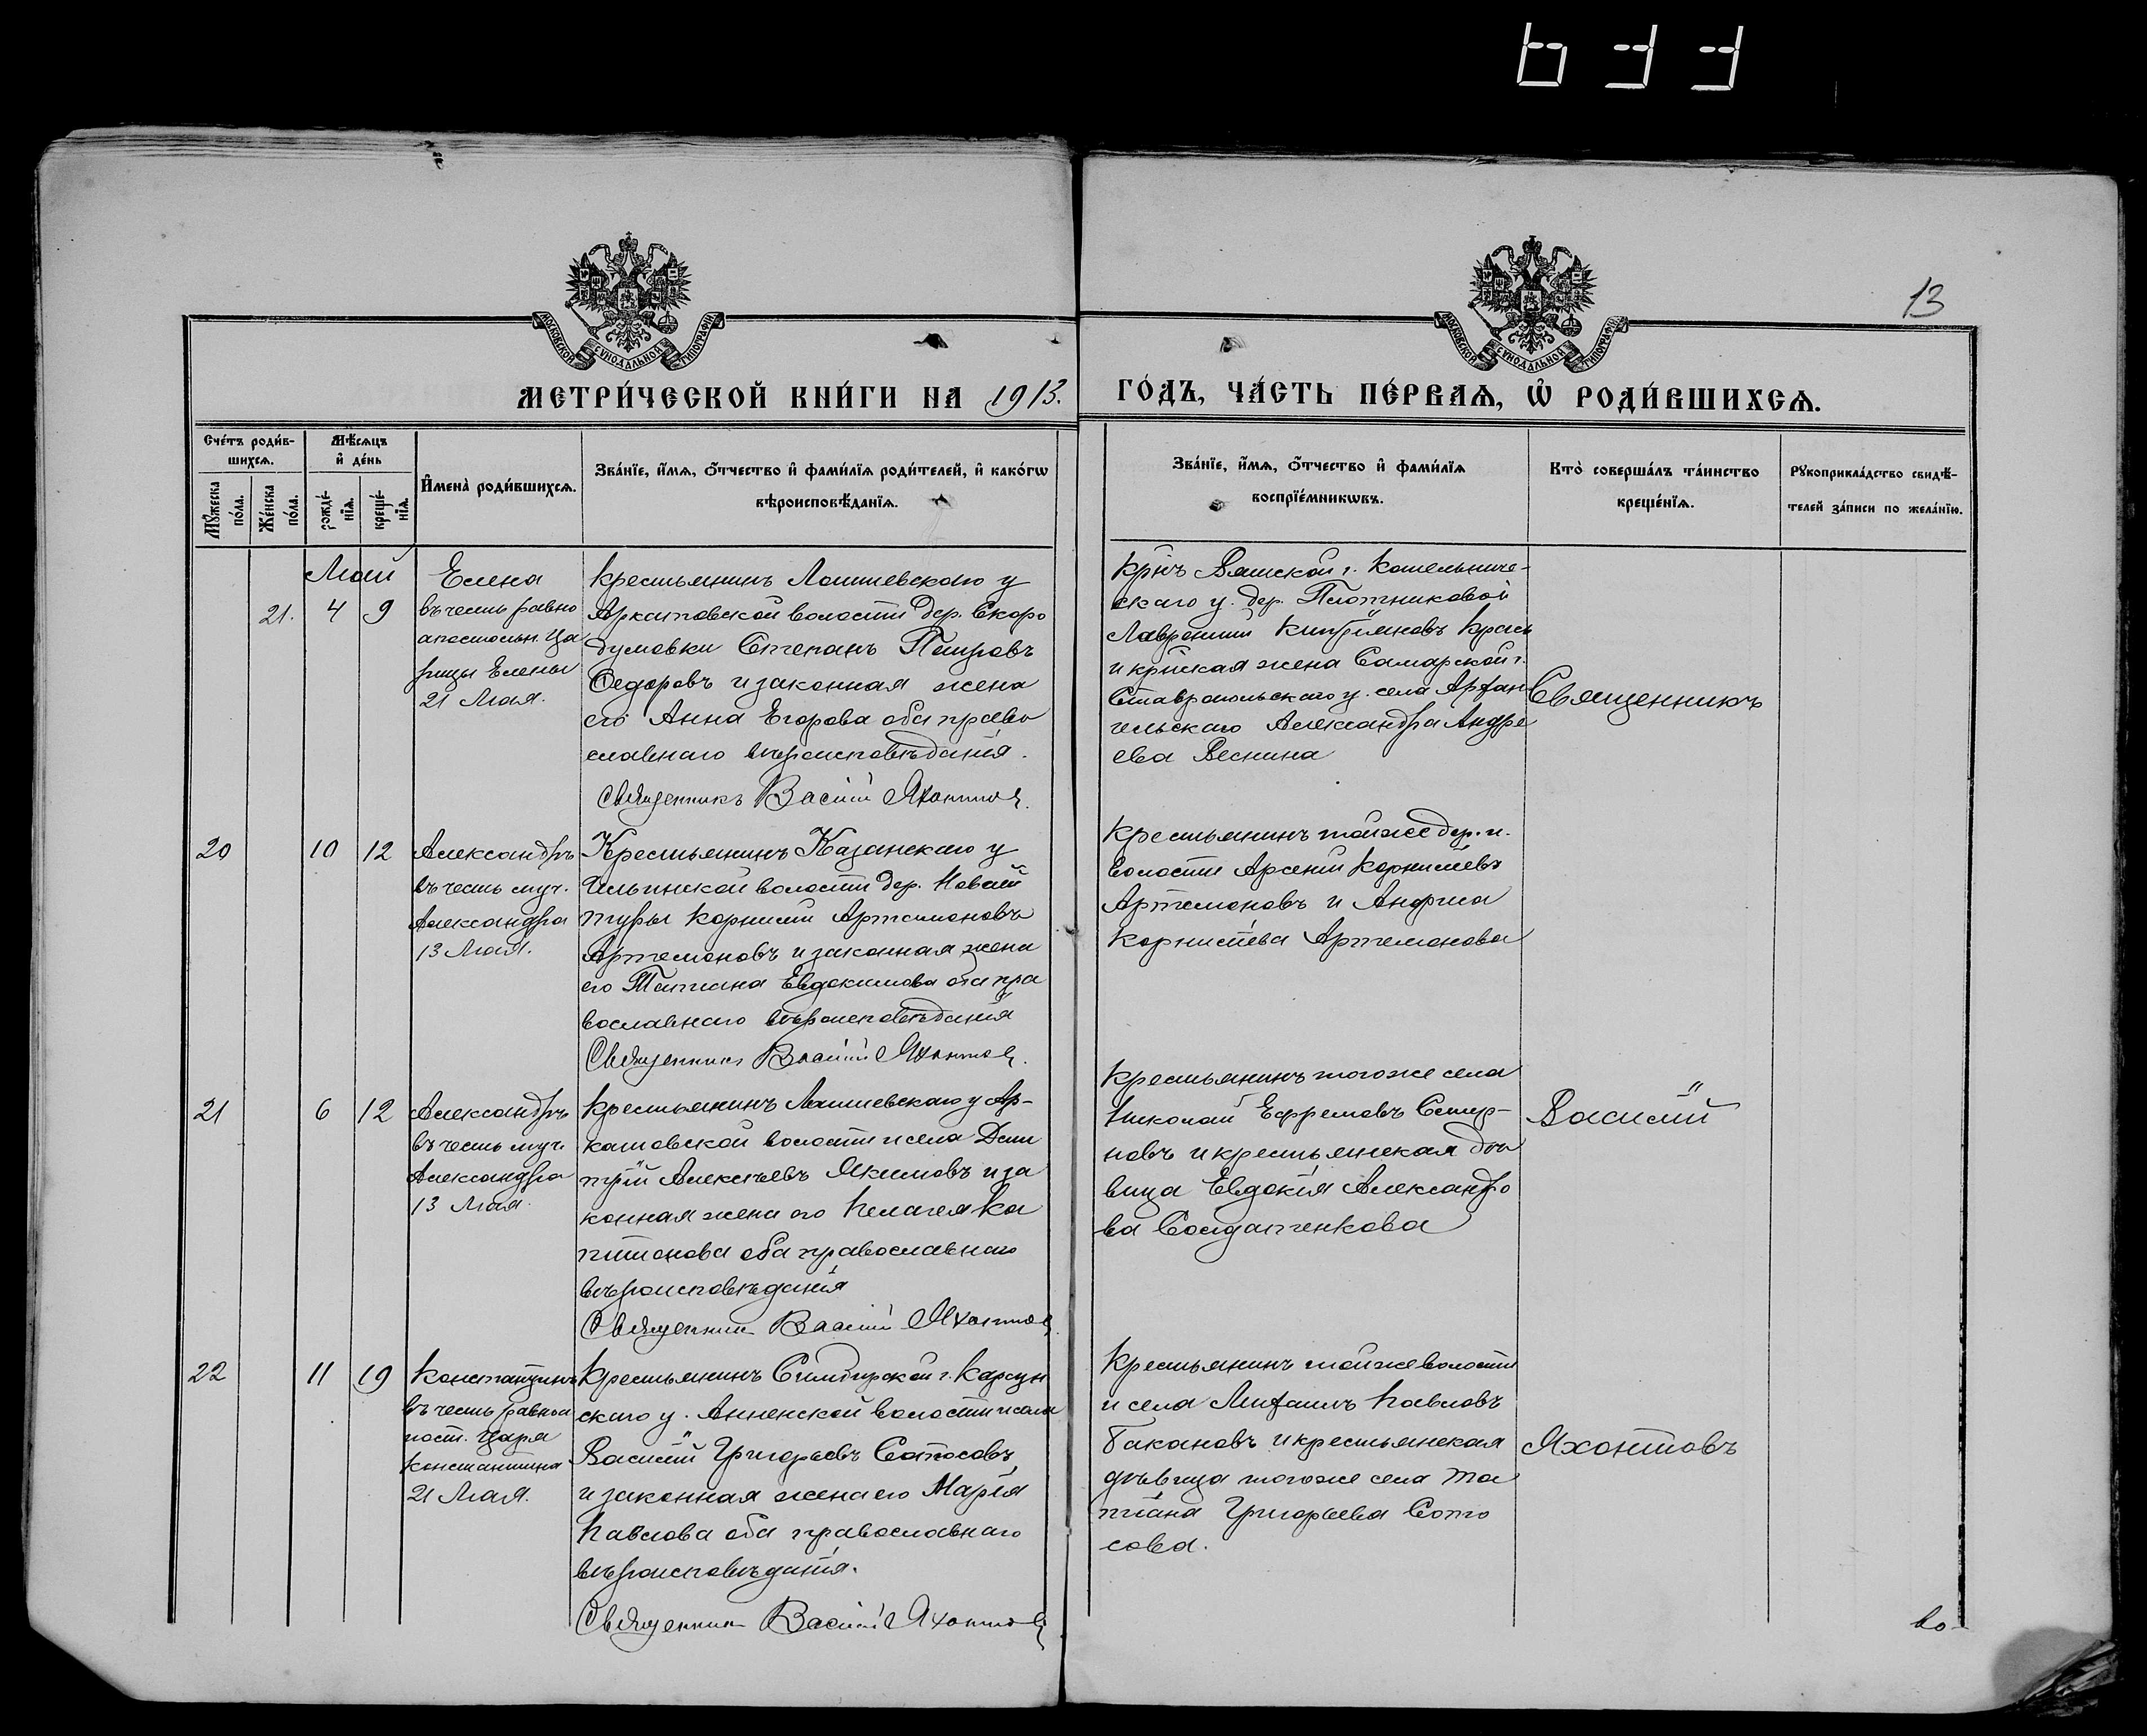 633
13
МОСКОВСКОЙ СУНОДАЛЬНОЙ ТИПОГРАФІИ
МОСКОВСКОЙ СУНОДАЛЬНОЙ ТИПОГРАФІИ
МЕТРИ́ЧЕСКОЙ КНИ́ГИ НА 1913.
ГО́ДЪ, ЧА́СТЬ ПЕ́РВАѦ, Ѽ РОДИ́ВШИХСѦ.
Сче́тъ роди́в-
шихсѧ.
Мѣ́сѧцъ
и҆ де́нь
Мꙋ́жеска
по́ла.
Же́нска
по́ла.
рожде́-
нїѧ.
креще́-
нїѧ.
И҆мена̀ роди́вшихсѧ.
Зва́нїе, и҆́мѧ, ѻ҆́тчество и҆ фами́лїѧ роди́телей, и҆ како́гѡ
вѣроисповѣ́данїѧ.
Зва́нїе, и҆́мѧ, ѻ҆́тчество и҆ фами́лїѧ
воспрїе́мникѡвъ.
Кто̀ соверша́лъ та́инство
креще́нїѧ.
Рꙋкоприкла́дство свидѣ́-
телей за́писи по жела́нїю.
Май
21. 4 9
Елена
въ честь равно
апостольн. Ца
рицы Елены
21 Мая.
Крестьянинъ Лаишевскаго у
Аркатовской волости дер. Скоро
думовки Степанъ Петровъ
Федоровъ и законная жена
его Анна Егорова оба право
славнаго вѣроисповѣданія.
Священникъ Василій Яхонтовъ.
Крнъ Вятской г. Котельниче-
скаго у. дер. Плотниковой
Лаврентій Кипріяновъ
и крнская жена Самарской г.
Ставропольскаго у. села Архан
гельскаго Александра Андре
ева Веснина
Священникъ
20 10 12
Александръ
въ честь муч.
Александра
13 Мая.
Крестьянинъ Казанскаго у
Ильинской волости дер. Новой
туры Корнилій Артемоновъ
Артемоновъ и законная жена
его Татиана Евдокимова оба пра
вославнаго вѣроисповѣданія
Священникъ Василій Яхонтовъ.
Крестьянинъ той же дер. и
волости Арсеній Корниліевъ
Артемоновъ и
Корниліева Артемонова
21 6 12
Александръ
въ честь муч.
Александра
13 Мая.
Крестьянинъ Лаишевскаго у Ар-
катовской волости и села Дми
трій Алексѣевъ Якимовъ и за
конная жена его Пелагея Ка
питонова оба православнаго
вѣроисповѣданія
Священникъ Василій Яхонтовъ.
Крестьянинъ того же села
Николай Ефремовъ Смир-
новъ и крестьянская дѣ
вица Евдокія Александро
ва Солдатенкова
Василій
22 11 19
Константинъ
въ честь равноа
пост. Царя
Константина
21 Мая.
Крестьянинъ Симбирской г. Карсун
скаго у. Анненской волости и села
Василій Григорьевъ Сотосовъ
и законная жена его Марія
Павлова оба православнаго
вѣроисповѣданія.
Священникъ Василій Яхонтовъ
Крестьянинъ той же волости
и села Михаилъ Павловъ
Бакановъ и крестьянская
дѣвица того же села Та
тіана Григорьева Сото
сова.
Яхонтовъ
во-